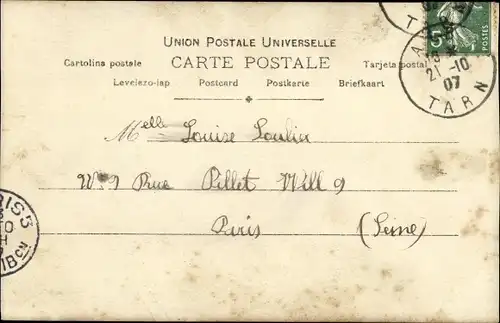 UNION POSTALE UNIVERSELLE
Cartolina postale CARTE POSTALE Tarjeta postal
Levelezo-lap Postcard Postkarte Briefkaart
Melle Louise Soulin
Nº 9 Rue Pillet Will 9
Paris (Seine)
5
POSTES
21 -10
07
TARN
PARIS